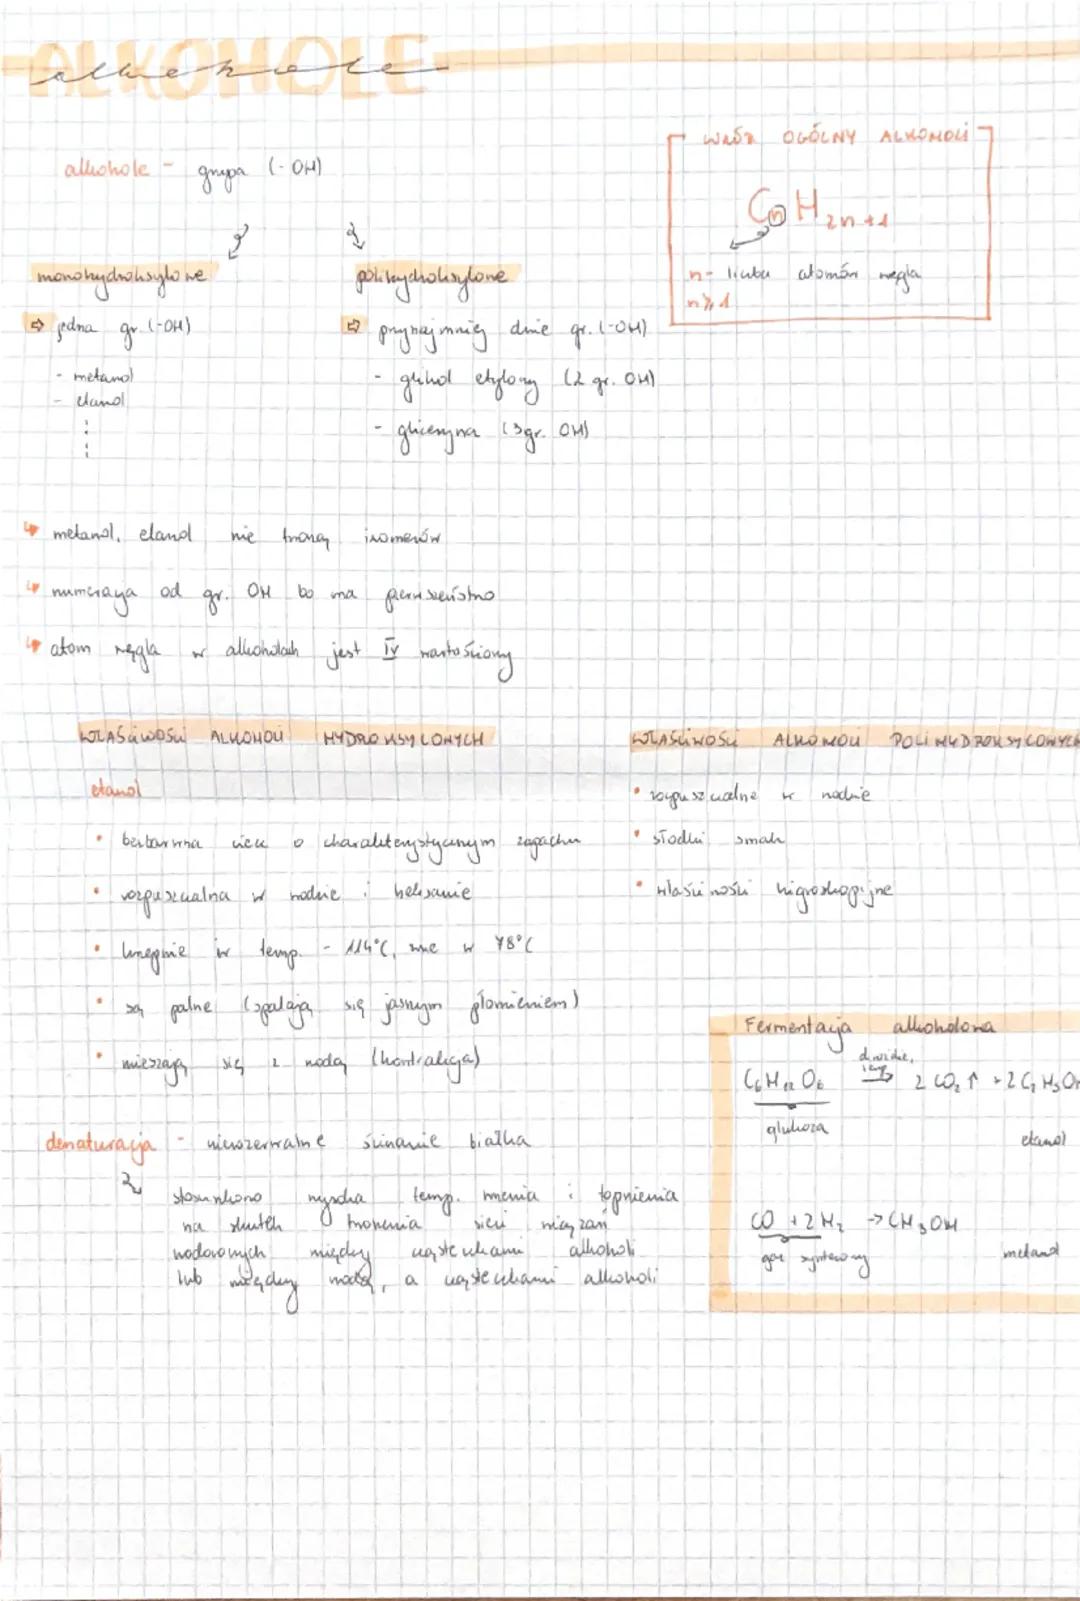 ALKOHOLE
alkohole
alkohole - grupa (-OH)
WZÓR OGÓLNY ALKOHOLI
CnH2n+1
n- liczba atomów węgla
n≥1
monohydroksylowe
jedna gr. (-OH)
- metanol
- etanol
polihydroksylowe
przynajmniej dwie gr. (-OH)
- glikol etylowy (2 gr. OH)
- gliceryna (3gr. OH)
metanol, etanol nie tworzą izomerów
numeracja od gr. OH bo ma pierwszeństwo
atom węgla w alkoholach jest IV wartościowy
WŁAŚCIWOŚCI ALKOHOLI HYDROKSYLOWYCH
etanol
• bezbarwna ciecz o charakterystycznym zapachu
• rozpuszczalna w wodzie i heksanie
• krzepnie w temp. - 114°C, wrze w 78°C
• są palne (spalają się jasnym płomieniem)
• mieszają się z wodą (kontrakcja)
WŁAŚCIWOŚCI ALKOHOLI POLIHYDROKSYLOWYCH
• rozpuszczalne w wodzie
• słodki smak
• właściwości higroskopijne
denaturacja - nieodwracalne ścinanie białka
stosunkowo wysoka temp. wrzenia i topnienia
na skutek tworzenia sieci wiązań
wodorowych między cząsteczkami alkoholi
lub między wodą, a cząsteczkami alkoholi
Fermentacja alkoholowa
drożdże,
temp.
C6H12O6 → 2 CO2↑ + 2 C2H5OH
glukoza etanol
CO + 2 H2 → CH3OH
gaz syntezowy metanol